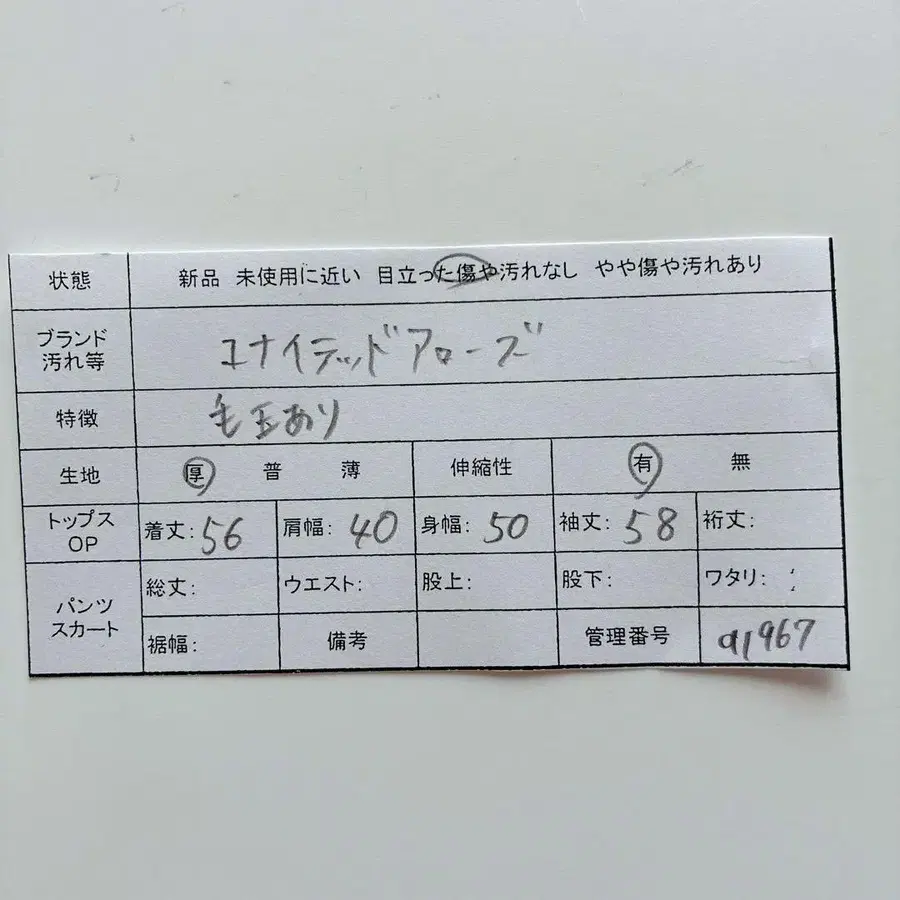 状態 新品 未使用に近い 目立った傷や汚れなし やや傷や汚れあり
ブランド
汚れ等
ユナイテッドアローズ
特徴 毛玉あり
生地 厚 普 薄 伸縮性 有 無
トップス
OP
着丈: 56 肩幅: 40 身幅: 50 袖丈: 58 裄丈:
パンツ
スカート
総丈: ウエスト: 股上: 股下: ワタリ:
裾幅: 備考 管理番号 a1967